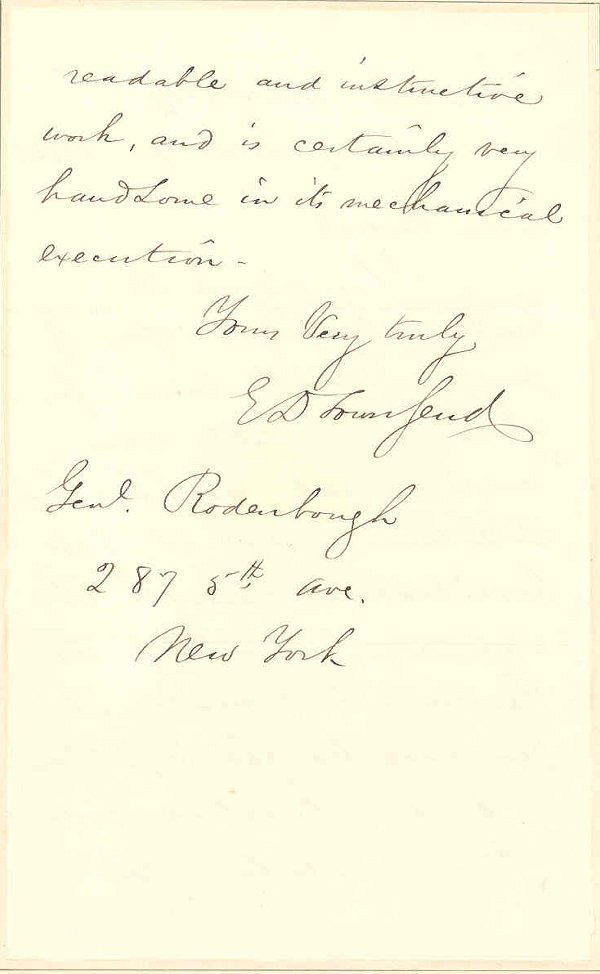 readable and instructive
work, and is certainly very
handsome in its mechanical
execution -
Yours Very truly
E D Townsend
Genl. Rodenbough
287 5th ave.
New York